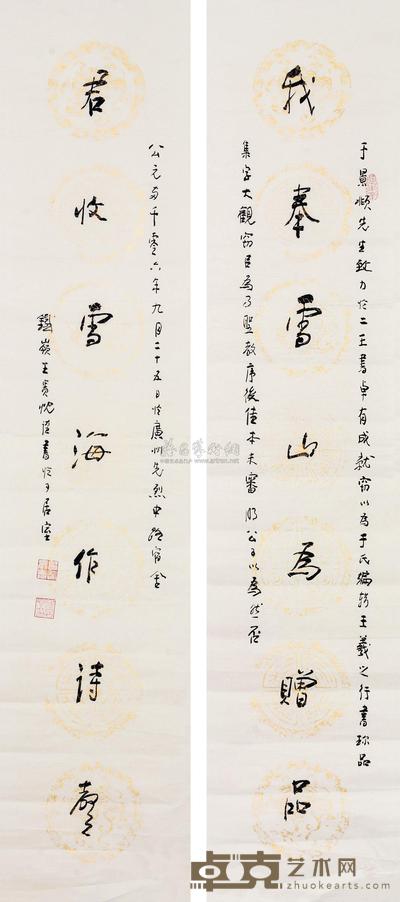 于景頫先生致力於二王書卓有成就窃以為于氏編輯王羲之行書珍品
我奉雪山為贈品
集字大觀窃目為乃聖教序後佳本未審 明公可以為然否
公元兩千零六年九月二十五日於廣州先烈中路宿舍
君收雪海作詩聲
鐵嶺王貴忱書於可居室
卓克艺术网
www.zhuokearts.com